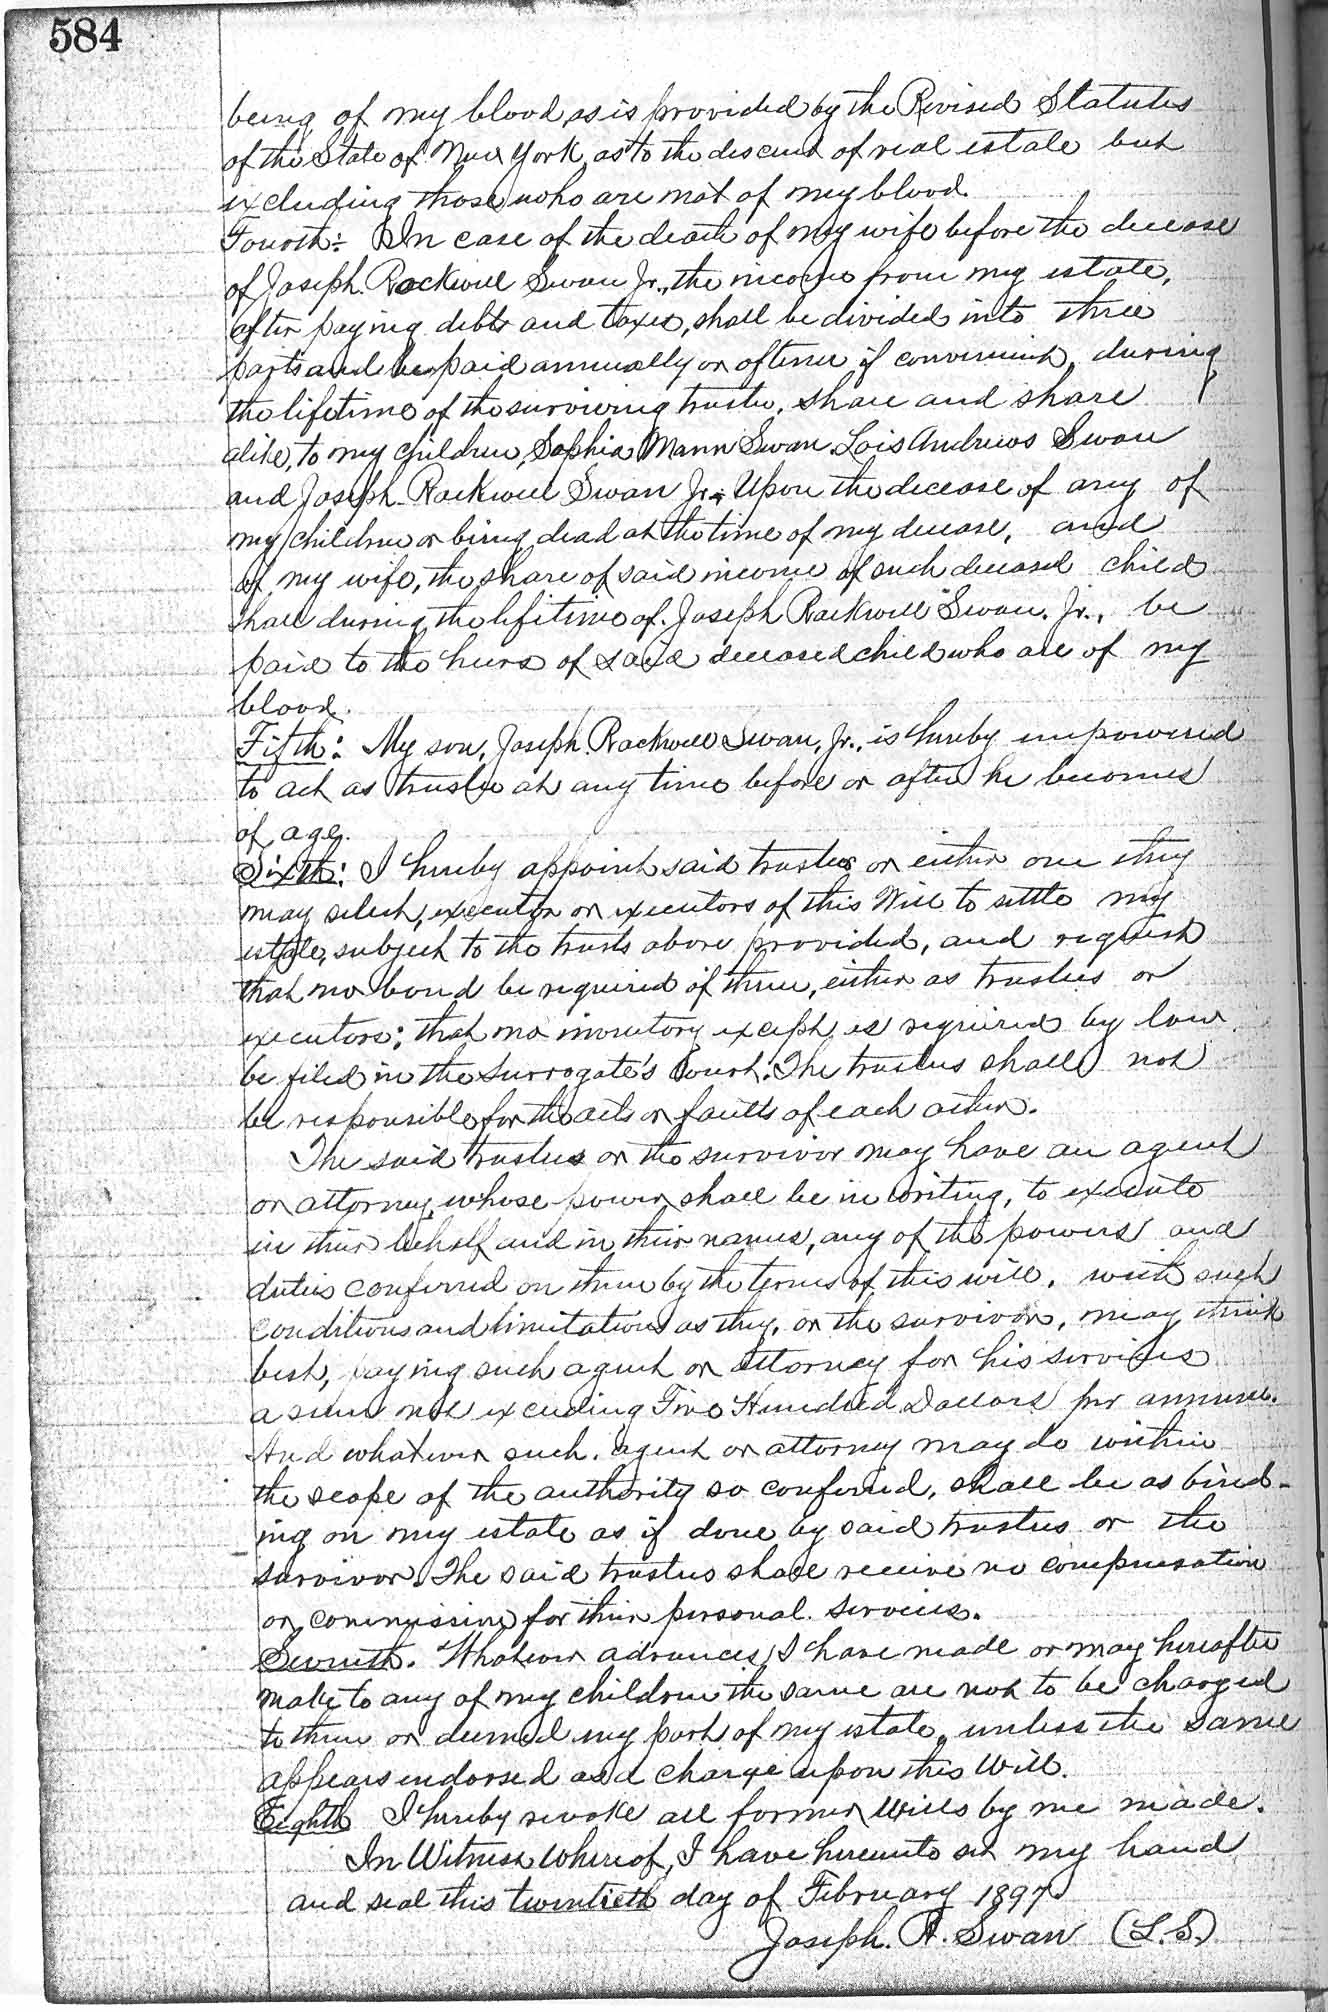 584
being of my blood as is provided by the Revised Statutes
of the State of New York, as to the descent of real estate but
excluding those who are not of my blood.
Fourth:- In case of the death of my wife before the decease
of Joseph Rockwell Swan Jr., the income from my estate,
after paying debts and taxes, shall be divided into three
parts and be paid annually or oftener if convenient, during
the lifetime of the surviving trustee, share and share
alike, to my children, Sophia Mann Swan Lois Andrews Swan
and Joseph Rockwell Swan Jr. Upon the decease of any of
my children or being dead at the time of my decease, and
of my wife, the share of said income of such deceased child
shall during the lifetime of Joseph Rockwell Swan. Jr., be
paid to the heirs of said deceased child who are of my
blood.
Fifth: My son, Joseph Rockwell Swan, Jr., is hereby empowered
to act as trustee at any time before or after he becomes
of age.
Sixth: I hereby appoint said trustees or either one they
may select, executor or executors of this Will to settle my
estate, subject to the trusts above provided, and request
that no bond be required of them, either as trustees or
executors; that no inventory except as required by law
be filed in the Surrogate's Court. The trustees shall not
be responsible for the acts or faults of each other.
The said trustees or the survivor may have an agent
or attorney, whose power shall be in writing, to execute
in their behalf and in their names, any of the powers and
duties conferred on them by the terms of this will, with such
conditions and limitations as they, or the survivor, may think
best, paying such agent or attorney for his services
a sum not exceeding Five Hundred Dollars per annum.
And whatever such agent or attorney may do within
the scope of the authority so conferred, shall be as bind-
ing on my estate as if done by said trustees or the
survivor. The said trustees shall receive no compensation
or commission for their personal services.
Seventh. Whatever advances I have made or may hereafter
make to any of my children the same are not to be charged
to them or deemed any part of my estate, unless the same
appears endorsed as a charge upon this Will.
Eighth I hereby revoke all former Wills by me made.
In Witness Whereof, I have hereunto set my hand
and seal this twentieth day of February 1897.
Joseph R. Swan (L.S.)